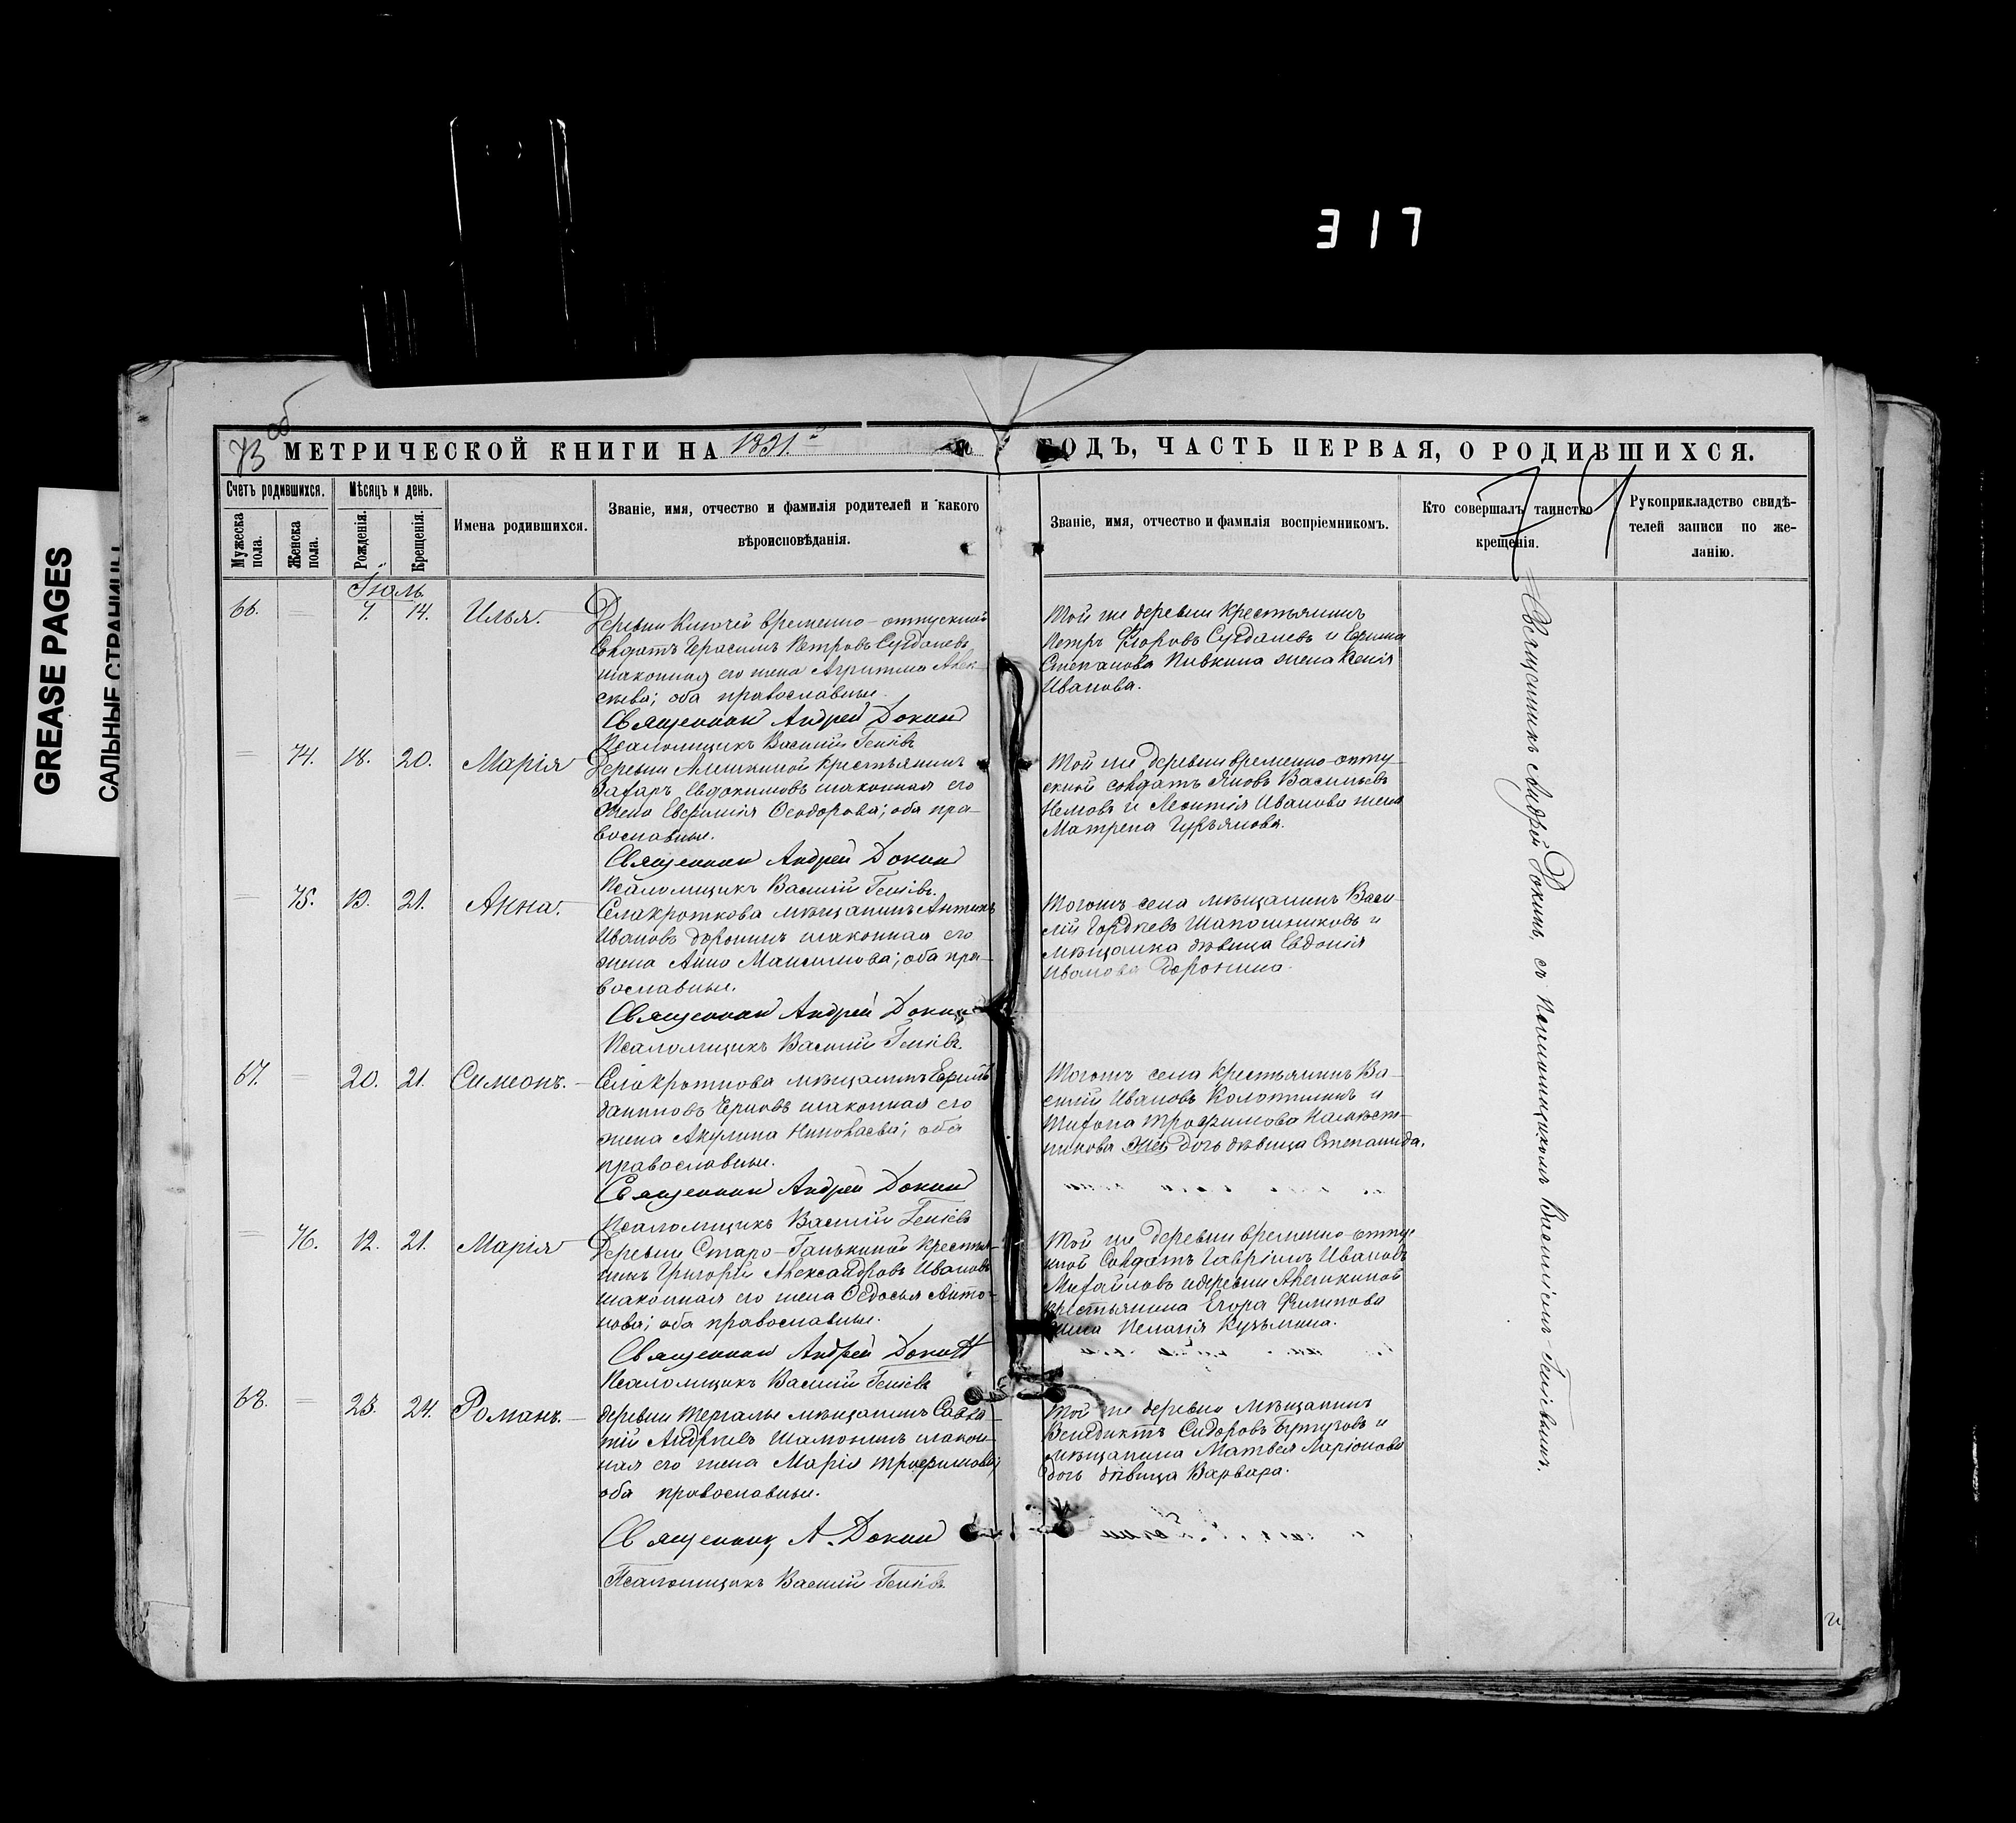 317
GREASE PAGES
САЛЬНЫЕ СТРАНИЦЫ
73 об
МЕТРИЧЕСКОЙ КНИГИ НА 1891.
ГОДЪ, ЧАСТЬ ПЕРВАЯ, О РОДИВШИХСЯ.
74
Счетъ родившихся.
Мужеска пола.
Женска пола.
Мѣсяцъ и день.
Рожденія.
Крещенія.
Имена родившихся.
Званіе, имя, отчество и фамилія родителей и какого
вѣроисповѣданія.
Званіе, имя, отчество и фамилія воспріемникомъ.
Кто совершалъ таинство
крещенія.
Рукоприкладство свидѣ-
телей записи по же-
ланію.
Іюль
66. 7. 14. Илья.
Деревни Ключей временно-отпускной
Солдатъ Герасимъ Петровъ Сугданевъ
законная его жена Агрипина Алек-
сѣева; оба православные.
Священник Андрей Докин
Псаломщикъ Василій Геніевъ
Той же деревни крестьянинъ
Петръ Егоровъ Сугданевъ и Ефима
Степанова Пивкина жена Ксенія
Иванова.
74. 18. 20. Марія
Деревни Алешкиной крестьянинъ
Захаръ Евдокимовъ законная его
жена Евфимія Ѳеодорова; оба пра-
вославные.
Священник Андрей Докин
Псаломщикъ Василій Геніевъ.
Той же деревни временно-отпу-
скной солдатъ Яковъ Васильевъ
и Леонтія Иванова жена
Матрена Гурьянова.
75. 19. 21. Анна.
Села Кроткова мѣщанинъ Антипъ
Ивановъ Доронинъ законная его
жена Анна Максимова; оба пра-
вославные.
Священник Андрей Докин
Псаломщикъ Василій Геніевъ.
Тогожъ села мѣщанинъ Васи-
лій Гордѣевъ Шапошниковъ и
мѣщанка дѣвица Евдокія
Иванова Доронина.
67. 20. 21. Симеонъ.
Села Кроткова мѣщанинъ Ефимъ
Даниловъ Черновъ законная его
жена Акулина Николаева; оба
православные.
Священник Андрей Докин
Псаломщикъ Василій Геніевъ
Тогожъ села крестьянинъ Ва-
силій Ивановъ Колотилинъ и
Тихона Трофимова Намѣст-
никова дочь дѣвица Степанида.
76. 12. 21. Марія
Деревни Старо-Ганькиной крестья-
нинъ Григорій Александровъ Ивановъ
законная его жена Ѳедосья Анто-
нова; оба православные.
Священник Андрей Докин
Псаломщикъ Василій Геніевъ
Той же деревни временно-отпус
кной Солдатъ Гавріилъ Ивановъ
Михайловъ и деревни Алешкиной
крестьянина Егора Филипова
жена Пелагія Кузьмина.
68. 23. 24. Романъ.
деревни Тергалы мѣщанинъ Савва-
тій Андреевъ Шамонинъ закон-
ная его жена Марія Трофимова;
оба православные.
Священник А. Докин
Псаломщикъ Василій Геніевъ
Той же деревни мѣщанинъ
Венедиктъ Сидоровъ Бутузовъ и
мѣщанина Матвея Ларіонова
дочь дѣвица Варвара.
Священникъ Андрей Докинъ, съ Псаломщикомъ Василіемъ Геніевымъ.